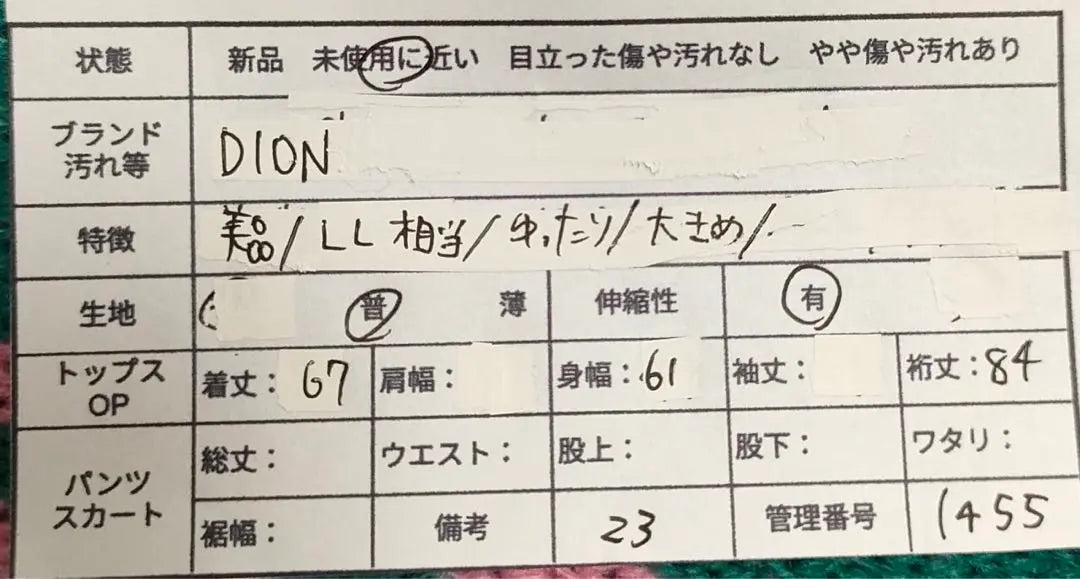 状態 新品 未使用に近い 目立った傷や汚れなし やや傷や汚れあり
ブランド
汚れ等 DION
特徴 美品/LL相当/ゆったり/大きめ/
生地 普 薄 伸縮性 有
トップス
OP 着丈:67 肩幅: 身幅:61 袖丈: 裄丈:84
パンツ
スカート 総丈: ウエスト: 股上: 股下: ワタリ:
裾幅: 備考 23 管理番号 1455